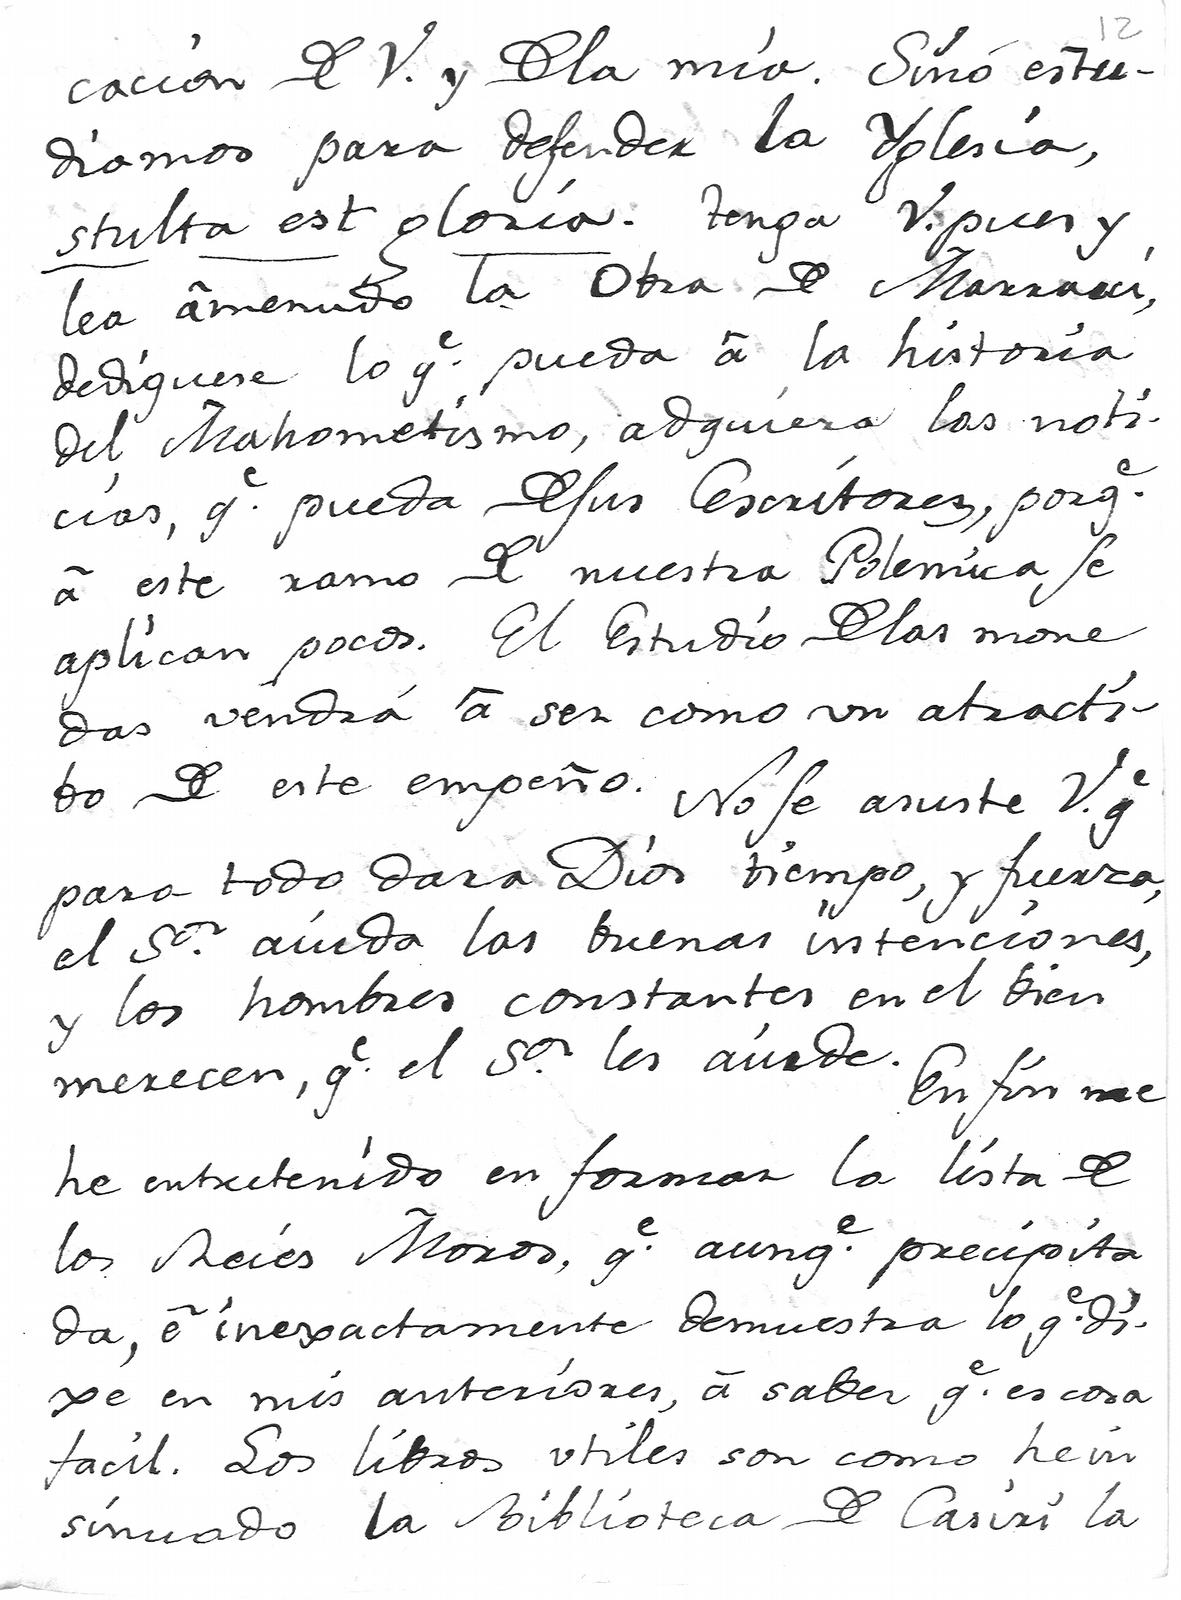 12
cacion de V. y dela mia. Sinó estu-
diamos para defender la Yglesia,
stulta est gloria. tenga V. pues y
lea âmenudo la Obra de Marracci,
dediquese lo q.e pueda â la historia
del Mahometismo, adquiera las noti-
cias, q.e pueda desus Escritores, porq.e
â este ramo de nuestra Polemica se
aplican pocos. El Estudio delas mone
das vendrá â ser como un atracti-
bo de este empeño. No se asuste V. q.e
para todo dara Dios tiempo, y fuerza,
el S.or aiuda las buenas intenciones,
y los hombres constantes en el bien
merecen, q.e el S.or les aiude. En fin me
he entretenido en formar la lista de
los Reies Moros, q.e aunq.e precipita
da, ê inexactamente demuestra lo q.e di-
xe en mis anteriores, â saber q.e es cosa
facil. Los libros utiles son como he in
sinuado la Biblioteca de Casiri la